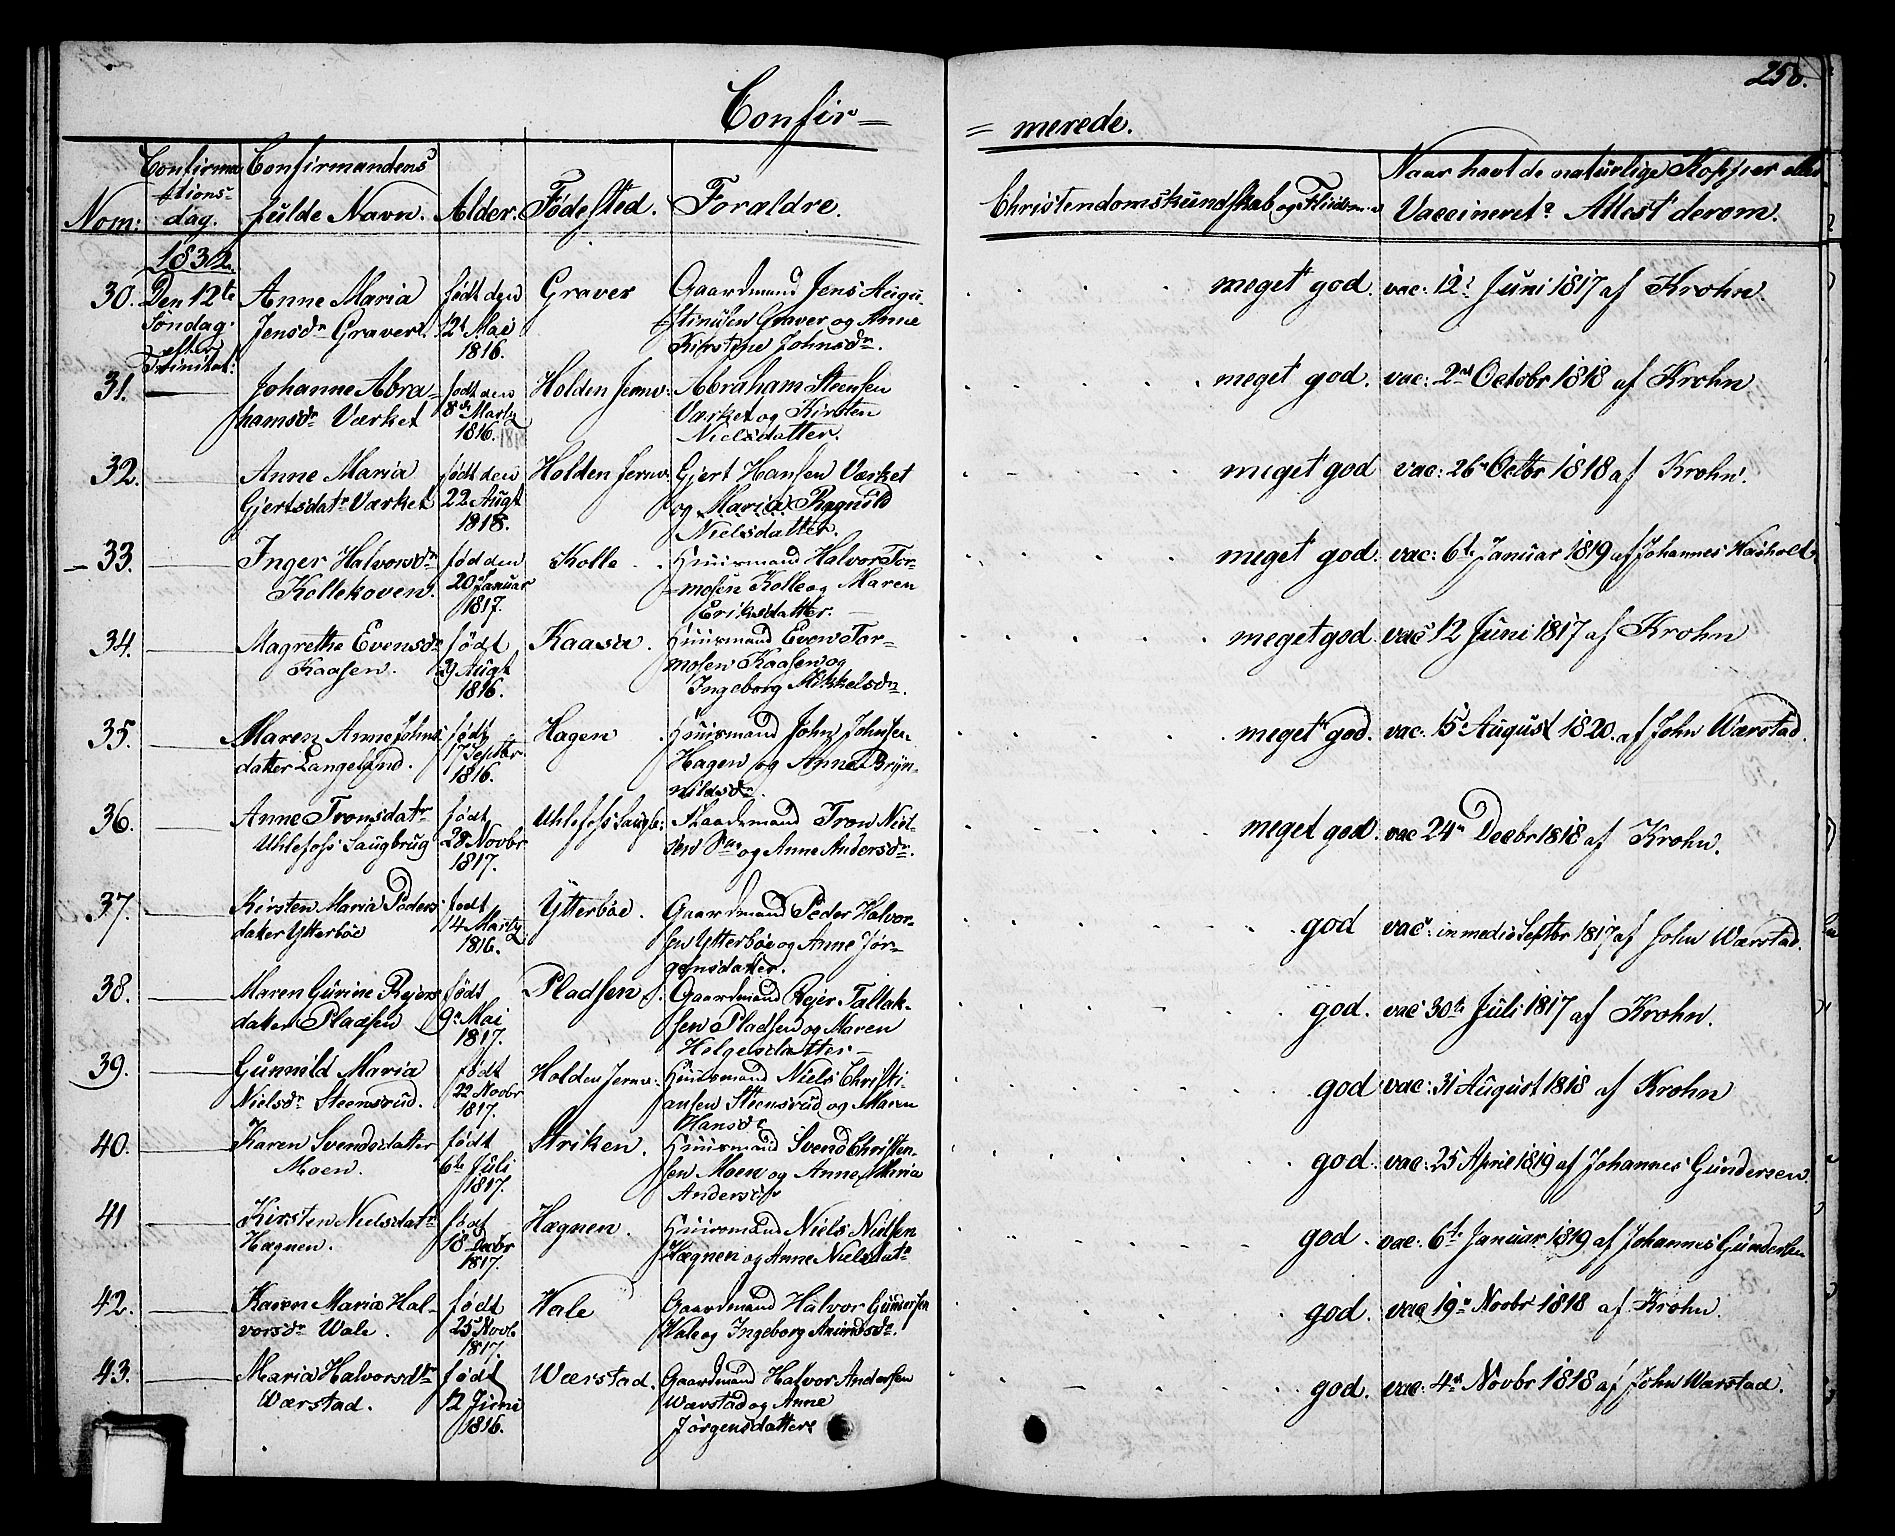 258.
Confir=
= merede.
Nom:
Confirma
tions-
dag.
Confirmandens
fulde Navn.
Alder.
Fødested.
Forældre.
Christendomskundskab og Flid
Naar havt de naturlige Kopper eller
Vaccineret. Attest derom.
1832.
30. Den 12te
Søndag
efter
Trinitat:
Anne Maria
Jensdr Graver.
født den
12t Mai
1816.
Graver
Gaardmand Jens Augu-
stinusen Graver og Anne
Kirstine Johnsdr.
meget god.
vac: 12t Juni 1817 af Krohn.
31.
Johanne Abra
hamsdr Værket
født den
8de Marty
1816.
Holden Jernv:
Abraham Steensen
Værket og Kirsten
Nielsdatter.
meget god.
vac: 2nd Octobr 1818 af Krohn
32.
Anne Maria
Gjertsdatr Værket
født den
22 Augt
1818.
Holden Jernv:
Gjert Hansen Værket
og Maria Ragnild
Nielsdatter.
meget god
vac: 26 Octbr 1818 af Krohn.
33.
Inger Halvorsdr
Kollekoven.
fød den
20 Januar
1817.
Kolle
Huusmand Halvor Tor-
mosen Kolle og Maren
Eriksdatter.
meget god.
vac: 6te Januar 1819 af Johannes
34.
Magrethe Evensdr
Kaasen.
født
29 Augt
1816.
Kaasa.
Huusmand Even Tor-
mosen Kaasen og
Ingeborg Mikkelsdr.
meget god
vac 12 Juni 1817 af Krohn
35.
Maren Anne Johns
datter Langelund.
født
17 Septbr
1816.
Hagen
Huusmand John Johnsen
Hagen og Anne Bryn-
nildsdr.
meget god.
vac: 15 August 1820. af John Wærstad.
36.
Anne Tronsdatr
Uhlefoss Saugbrug
født
28 Novbr
1817.
Uhlefoss Saugb:
Tron Niel-
sen og Anne Andersdr.
meget god.
vac 24 Decbr 1818 af Krohn.
37.
Kirsten Maria Peders
datter Ytterbøe
født
14 Marty
1816.
Ytterbøe.
Gaardmand Peder Halvor-
sen Ytterbøe og Anne Jør-
gensdatter.
god
vac: in medio Septbr 1817 af John Wærstad.
38.
Maren Gurine Rejers
datter Pladsen
født
9 Mai
1817.
Pladsen
Gaardmand Rejer Tallak-
sen Pladsen og Maren
Helgesdatter
god.
vac 30te Juli 1817 af Krohn.
39.
Gunnild Maria
Nielsdr Steensrud.
født
22 Novbr
1817.
Holden Jernv:
Huusmand Niels Christi-
ansen Steensrud og Maren
Hansdr
god
vac: 31 August 1818 af Krohn
40.
Karen Svendsdatter
Moen.
født
6te Juli
1817.
Striken.
Huusmand Svend Christen-
sen Moen og Anne Maria
Andersdr
god.
vac: 25 April 1819 af Johannes Gundersen.
41
Kirsten Nielsdatr
Hægnen.
født
18 Decbr
1817.
Hægnen.
Huusmand Niels Nielsen
Hægnen og Anne Nielsdatr
god.
vac: 6te Januar 1819 af Johannes Gundersen
42.
Karen Maria Hal-
vorsdr Wale.
født
25 Novb
1817.
Wale
Gaardmand Halvor Gundersen
Wale og Ingeborg Amundsdr.
god.
vac 19 Novbr 1818 af Krohn.
43.
Maria Halvorsdr
Wærstad.
født
12 Juni
1816.
Wærstad.
Gaardmand Halvor Andersen
Wærstad og Anne
Jørgensdatter
god.
vac: 4de Novbr 1818 af John Wærstad.